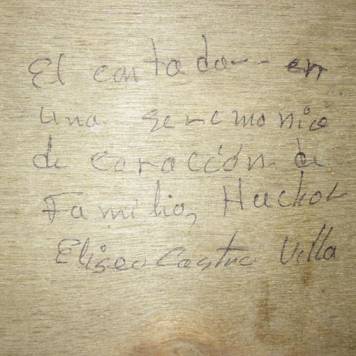 El cantador en
una seremonia
de coración de
Familia, Huchol
Eliseo Castro Villa